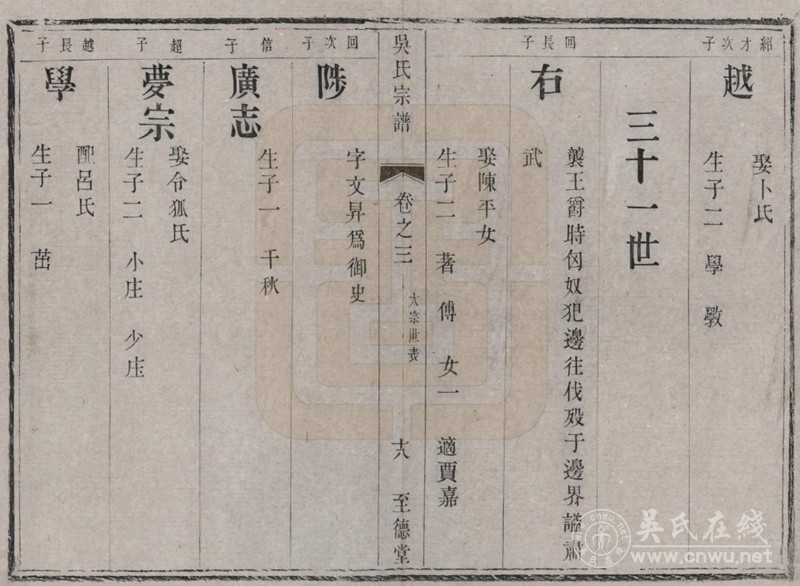 紹才次子
越
娶卜氏
生子二 學 斆
三十一世
回長子
右
襲王爵時匈奴犯邊往伐歿于邊界諡肅
武
娶陳平女
生子二 著 傅 女一 適賈嘉
吳氏宗譜 卷之三 大宗世表 十八 至德堂
回次子
陟
字文昇爲御史
信子
廣志
生子一 千秋
超子
夢宗
娶令狐氏
生子二 小庄 少庄
越長子
學
配呂氏
生子一 茁
吳氏在綫
www.cnwu.net